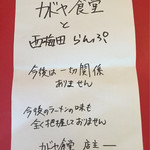 カドヤ食堂
と
西梅田 らんぷ
今後は一切関係
ありません
今後のラーメンの味も
全く把握しておりません
カドヤ食堂 店主